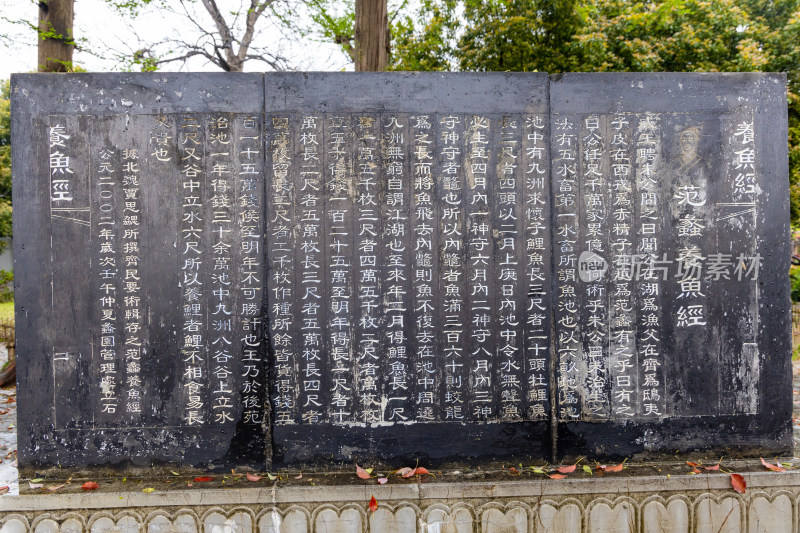 養魚經
一
范蠡養魚經
威王聘朱公問之曰聞公在湖為漁父在齊為鴟夷
子皮在西戎為赤精子在越為范蠡有之乎曰有之
曰公任足千萬家累億金何術乎朱公曰夫治生之
法有五水畜第一水畜所謂魚池也以六畝地為池
池中有九洲求懷子鯉魚長三尺者二十頭牡鯉魚
長三尺者四頭以二月上庚日內池中令水無聲魚
必生至四月內一神守六月內二神守八月內三神
守神守者鱉也所以內鱉者魚滿三百六十則蛟龍
為之長而將魚飛去內鱉則魚不復去在池中周遶
九洲無窮自謂江湖也至來年二月得鯉魚長一尺
者一萬五千枚三尺者四萬五千枚二尺者萬枚枚
直五十得錢一百二十五萬至明年得長一尺者十
萬枚長二尺者五萬枚長三尺者五萬枚長四尺者
四萬枚留長二尺者二千枚作種所餘皆貨得錢五
百一十五萬錢候至明年不可勝計也王乃於後苑
治池一年得錢三十余萬池中九洲八谷谷上立水
二尺又谷中立水六尺所以養鯉者鯉不相食易長
又貴也
據北魏賈思勰所撰齊民要術輯存之范蠡養魚經
公元二〇〇二年歲次壬午仲夏蠡園管理處立石
養魚經
二